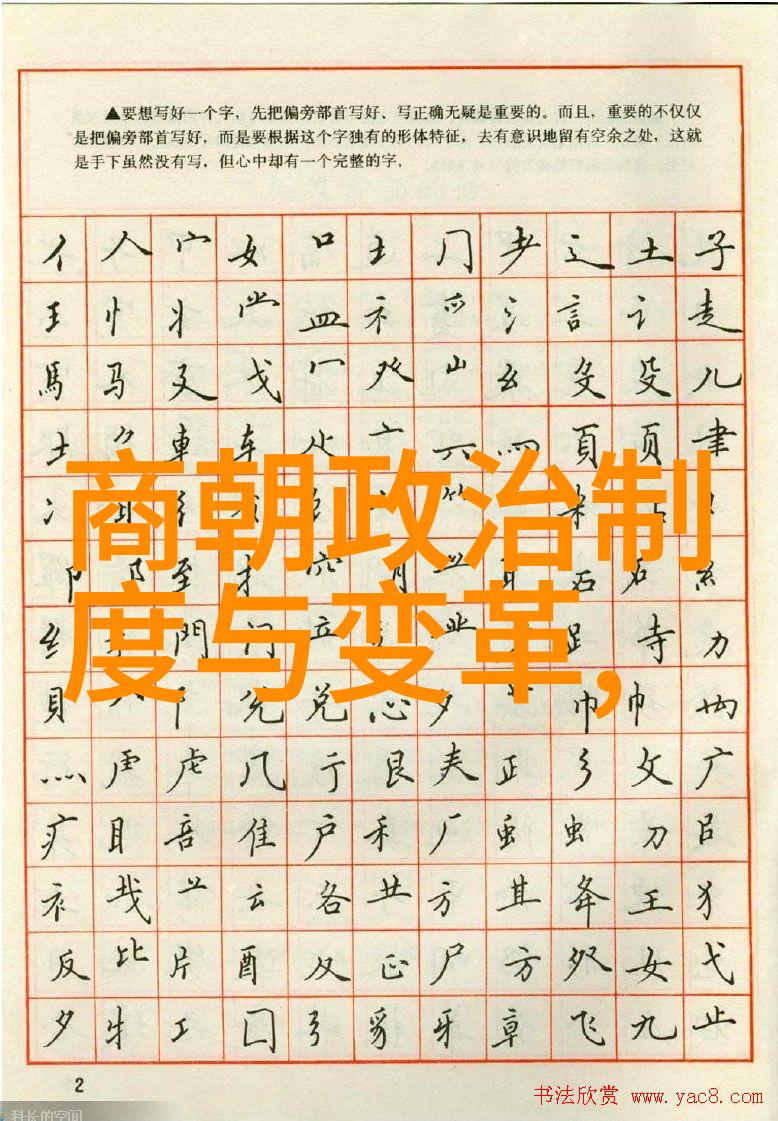 ▲要想写好一个字，先把偏旁部首写好、写正确无疑是重要的。而且，重要的不仅仅
是把偏旁部首写好，而是要根据这个字独有的形体特征，去有意识地留有空余之处，这就
是手下虽然没有写，但心中却有一个完整的字。
亻 人 宀 女 口 土 冂 耂 辶 土 子
王 忄 丬 龸 皿 礻 氵 言 讠 走
馬 马 廴 戈 冖 癶 山 幺 殳 儿
土 車 车 亠 罒 頁 页 聿
商朝政治制
冫 竹
卩 阝 至 扌 穴 月 石 糹
度与变革,
纟 門 门 立 寺 力
貝 兑 心 夕 巾
灬 虍 虎 几 亍 艮 夫 正 彡 文 广
疒 目 音 隹 户 禾 厂 虫 虫 刀
衤 云 各 方 其 夅 王 犭
反 比 片 酉 及 正 尸 方 女 弋
夕 牜 工 囗 弓 豸 牙 章 飞 九 止
2
书法欣赏 www.yac8.com
科长的空间